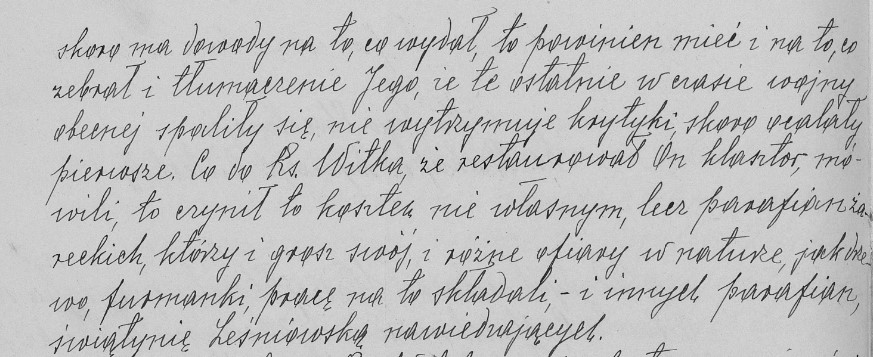 skoro ma dowody na to, co wydał, to powinien mieć i na to, co
zebrał i tłumaczenie Jego, że te ostatnie w czasie wojny
obecnej spaliły się, nie wytrzymuje krytyki, skoro ocalały
pierwsze. Co do Ks. Witka, że restaurował On klasztor, mó-
wili, to czynił to kosztem nie własnym, lecz parafian ża-
reckich, którzy i grosz swój, i różne ofiary w naturze, jak drze-
wo, furmanki, pracę na to składali, - i innych parafian,
świątynię Leśniowską nawiedzających.